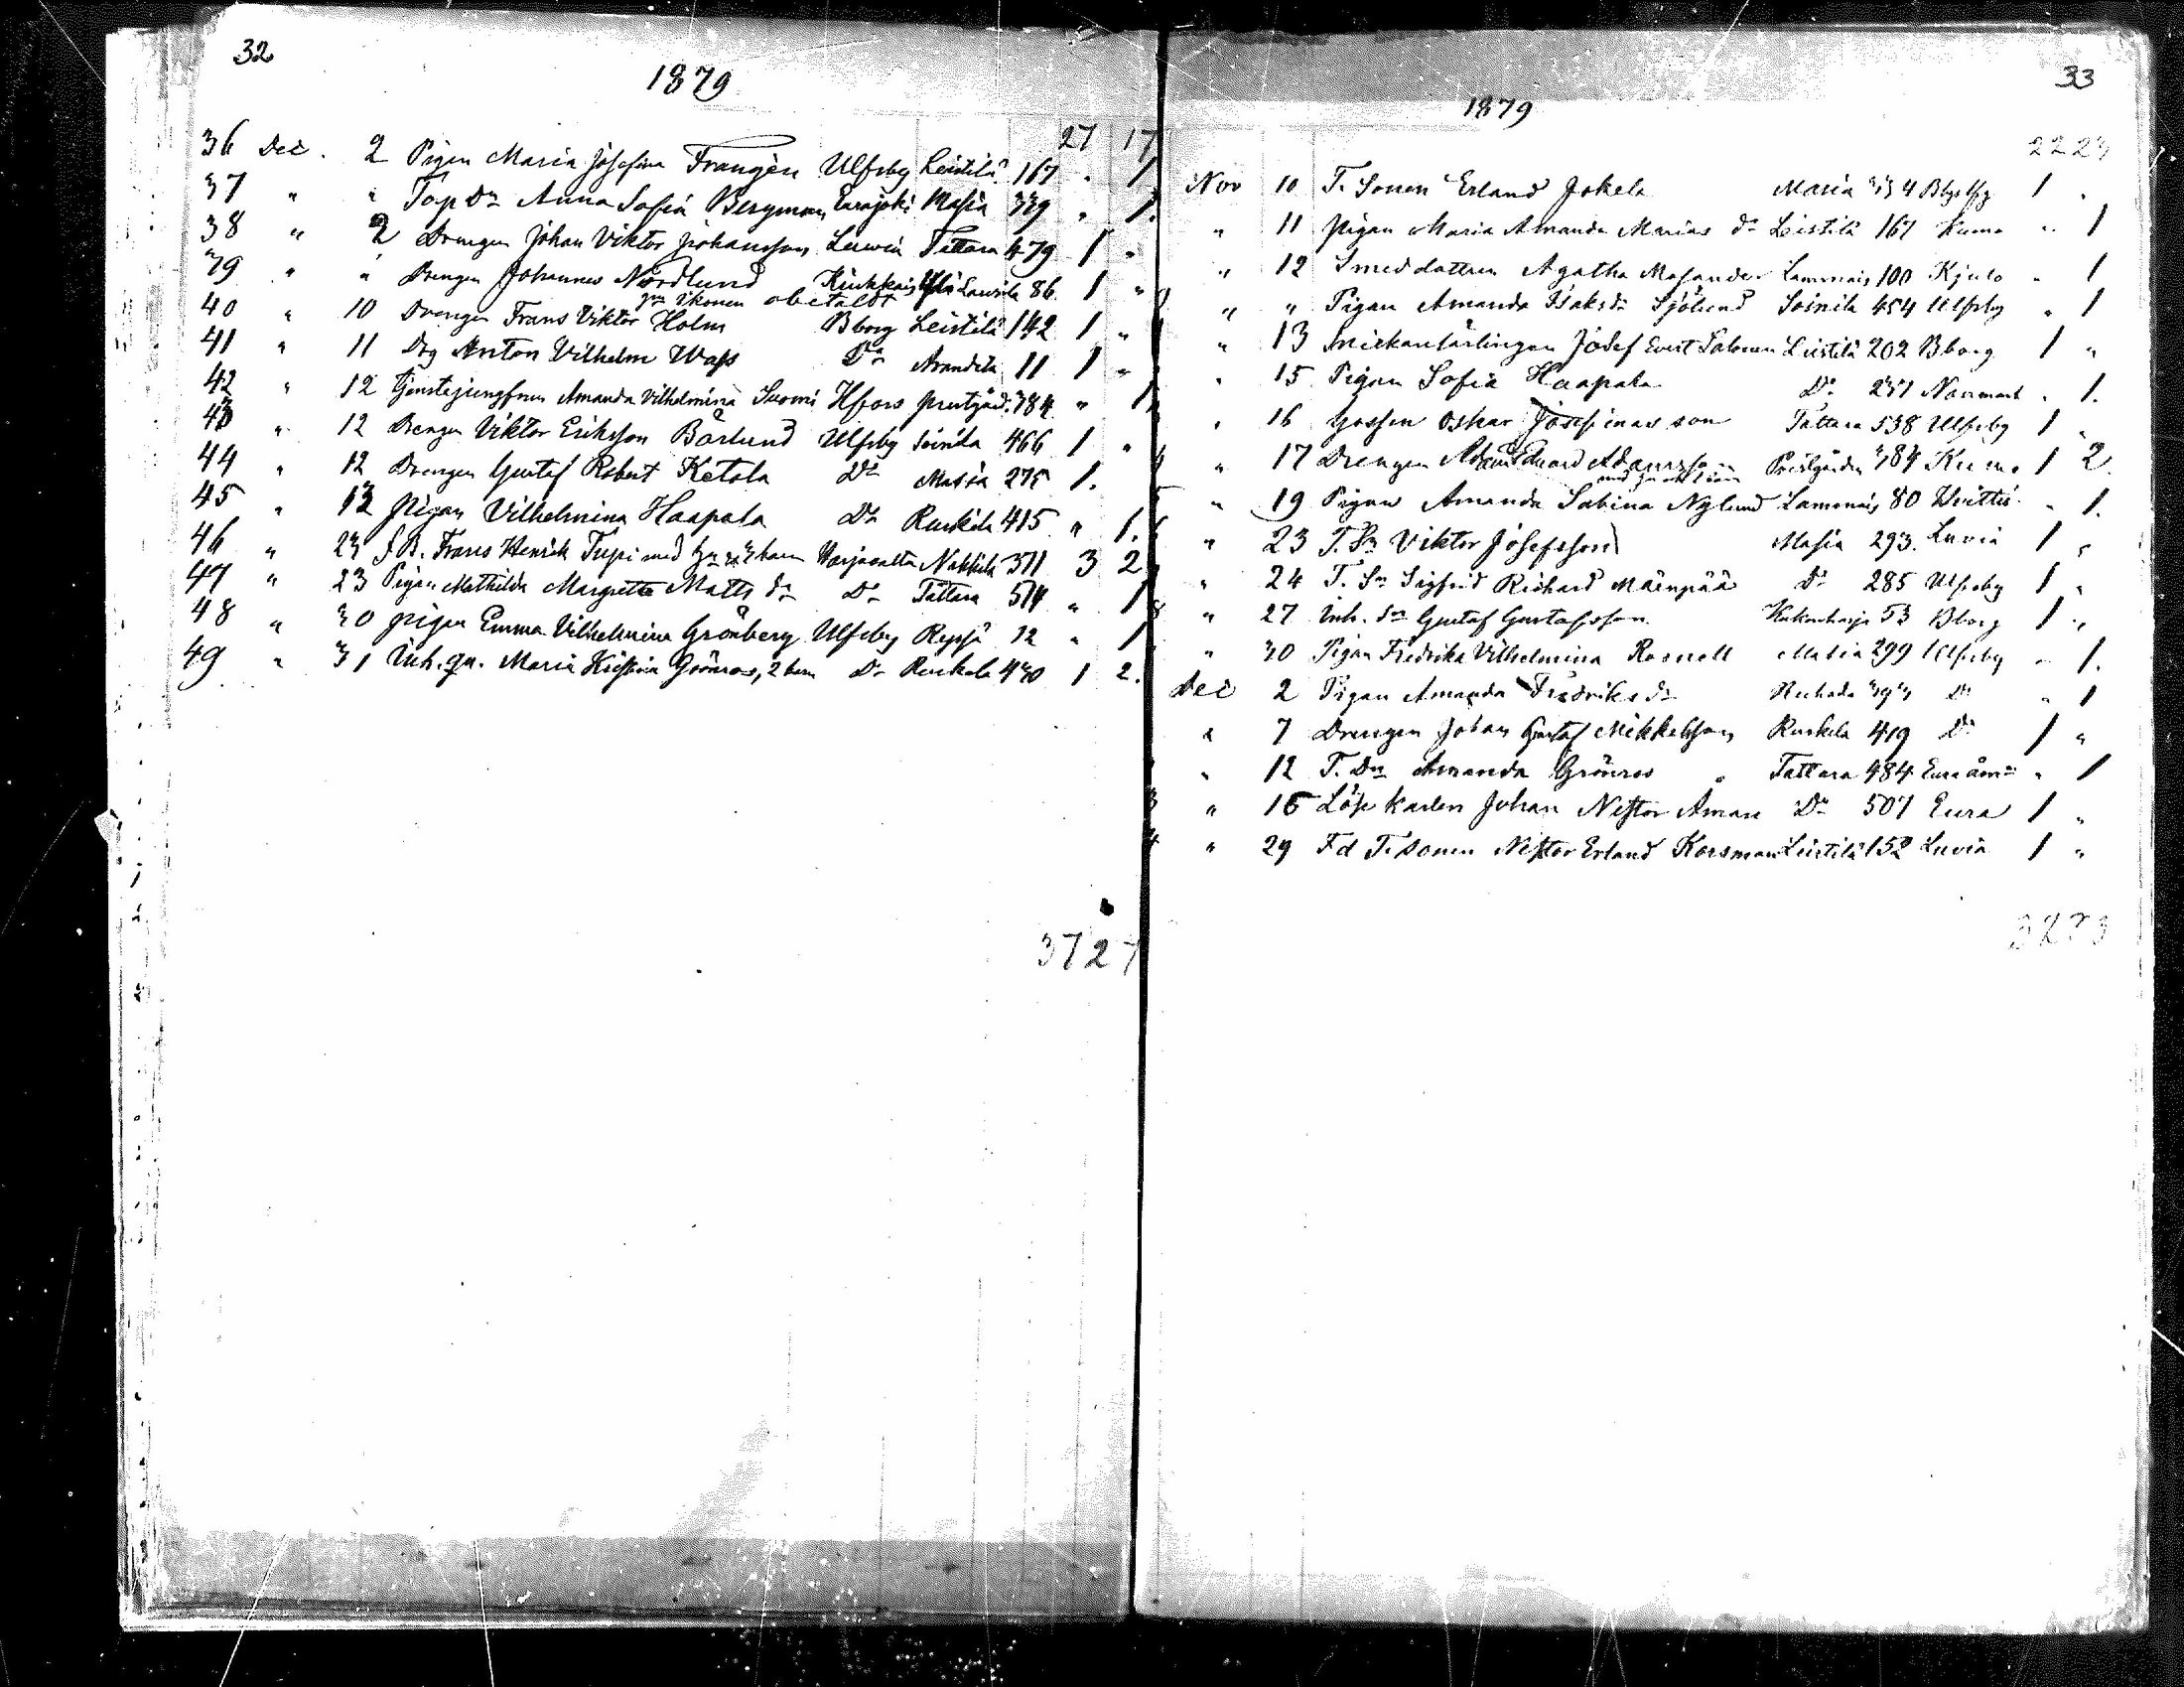 32
1879
27 17
36 Dec. 2 Pigan Maria Josefina Frangén Ulfsby Leistilä 167 " 1
37 " " Torp Dr Anna Sofia Bergman Eurajoki Masia 339 " 1.
38 " 2 Drengen Johan Viktor Johansson Luvia Tattara 479 1 "
39 " " Drengen Johannes Nordlund Kiukkais Lawila 86. 1 "
obetaldt
40 " 10 Drengen Frans Viktor Holm Bborg Leistilä 142 1 "
41 " 11 Drg Anton Vilhelm Wass Do Arandila 11 1 "
42 " 12 Tjenstejungfrun Amanda Vilhelmina Suomi Hfors prestgård. 384 " 1
43 " 12 Drengen Viktor Eriksson Bärlund Ulfsby Soinila 466 1 "
44 " 12 Drengen Gustaf Robert Ketola Do Masia 275 1.
45 " 13 Pigan Vilhelmina Haapala Do Ruskila 415 " 1.
46 " 23 Frans Henrik Tupi med hu o 3 barn Harjavalta Nakkila 311 3 2
47 " 23 Pigan Mathilda Margretta Matts dr Do Tattara 514 " 1
48 " 30 pigan Emma Vilhelmina Grönberg Ulfsby 12 " 1
49 " 31 Inh. qv. Maria Kristina Grönroos, 2 barn Do Ruskela 430 1 2.
37 27
33
1879
22 23
Nov 10 T. Sonen Erland Jokela Masia 334 1 "
" 11 pigan Maria Amanda Marias dr Leistilä 167 Kumo " 1
" 12 Smeddottren Agatha Masander Lammais 100 Kjulo " 1
" " Pigan Amanda Isaksdr Sjölund Soinila 454 Ulfsby " 1
" 13 Snickarlärlingen Josef Evert Salonen Leistilä 202 Bborg 1 "
" 15 Pigan Sofia Haapala Do 237 Norrmark " 1.
" 16 gossen Oskar Josefinas son Tattara 538 Ulfsby 1 "
" 17 Drengen Adam Eduard Adamsson 384 Kumo 1 2
" 19 Pigan Amanda Sabina Nylund Lammais 80 Huittis " 1.
" 23 T. Sn Viktor Josefsson Masia 293. Luvia 1 "
" 24 T. Sn Sigfrid Richard Mäenpää Do 285 Ulfsby 1 "
" 27 Inh. Sn Gustaf Gustafsson 53 Bborg 1 "
" 30 Pigan Fredrika Vilhelmina Rosnell Masia 299 Ulfsby " 1.
Dec 2 Pigan Amanda Fredriks dr 393 Do " 1
" 7 Drengen Johan Gustaf Mikkelsson Ruskela 419 Do 1 "
" 12 T. Dr Amanda Grönros Tattara 484 Euraåm: " 1
" 15 Löskarlen Johan Nestor Aman Do 507 Eura 1 "
" 29 Fd T. Sonen Nestor Erland Korsman Leistilä 152 Luvia 1 "